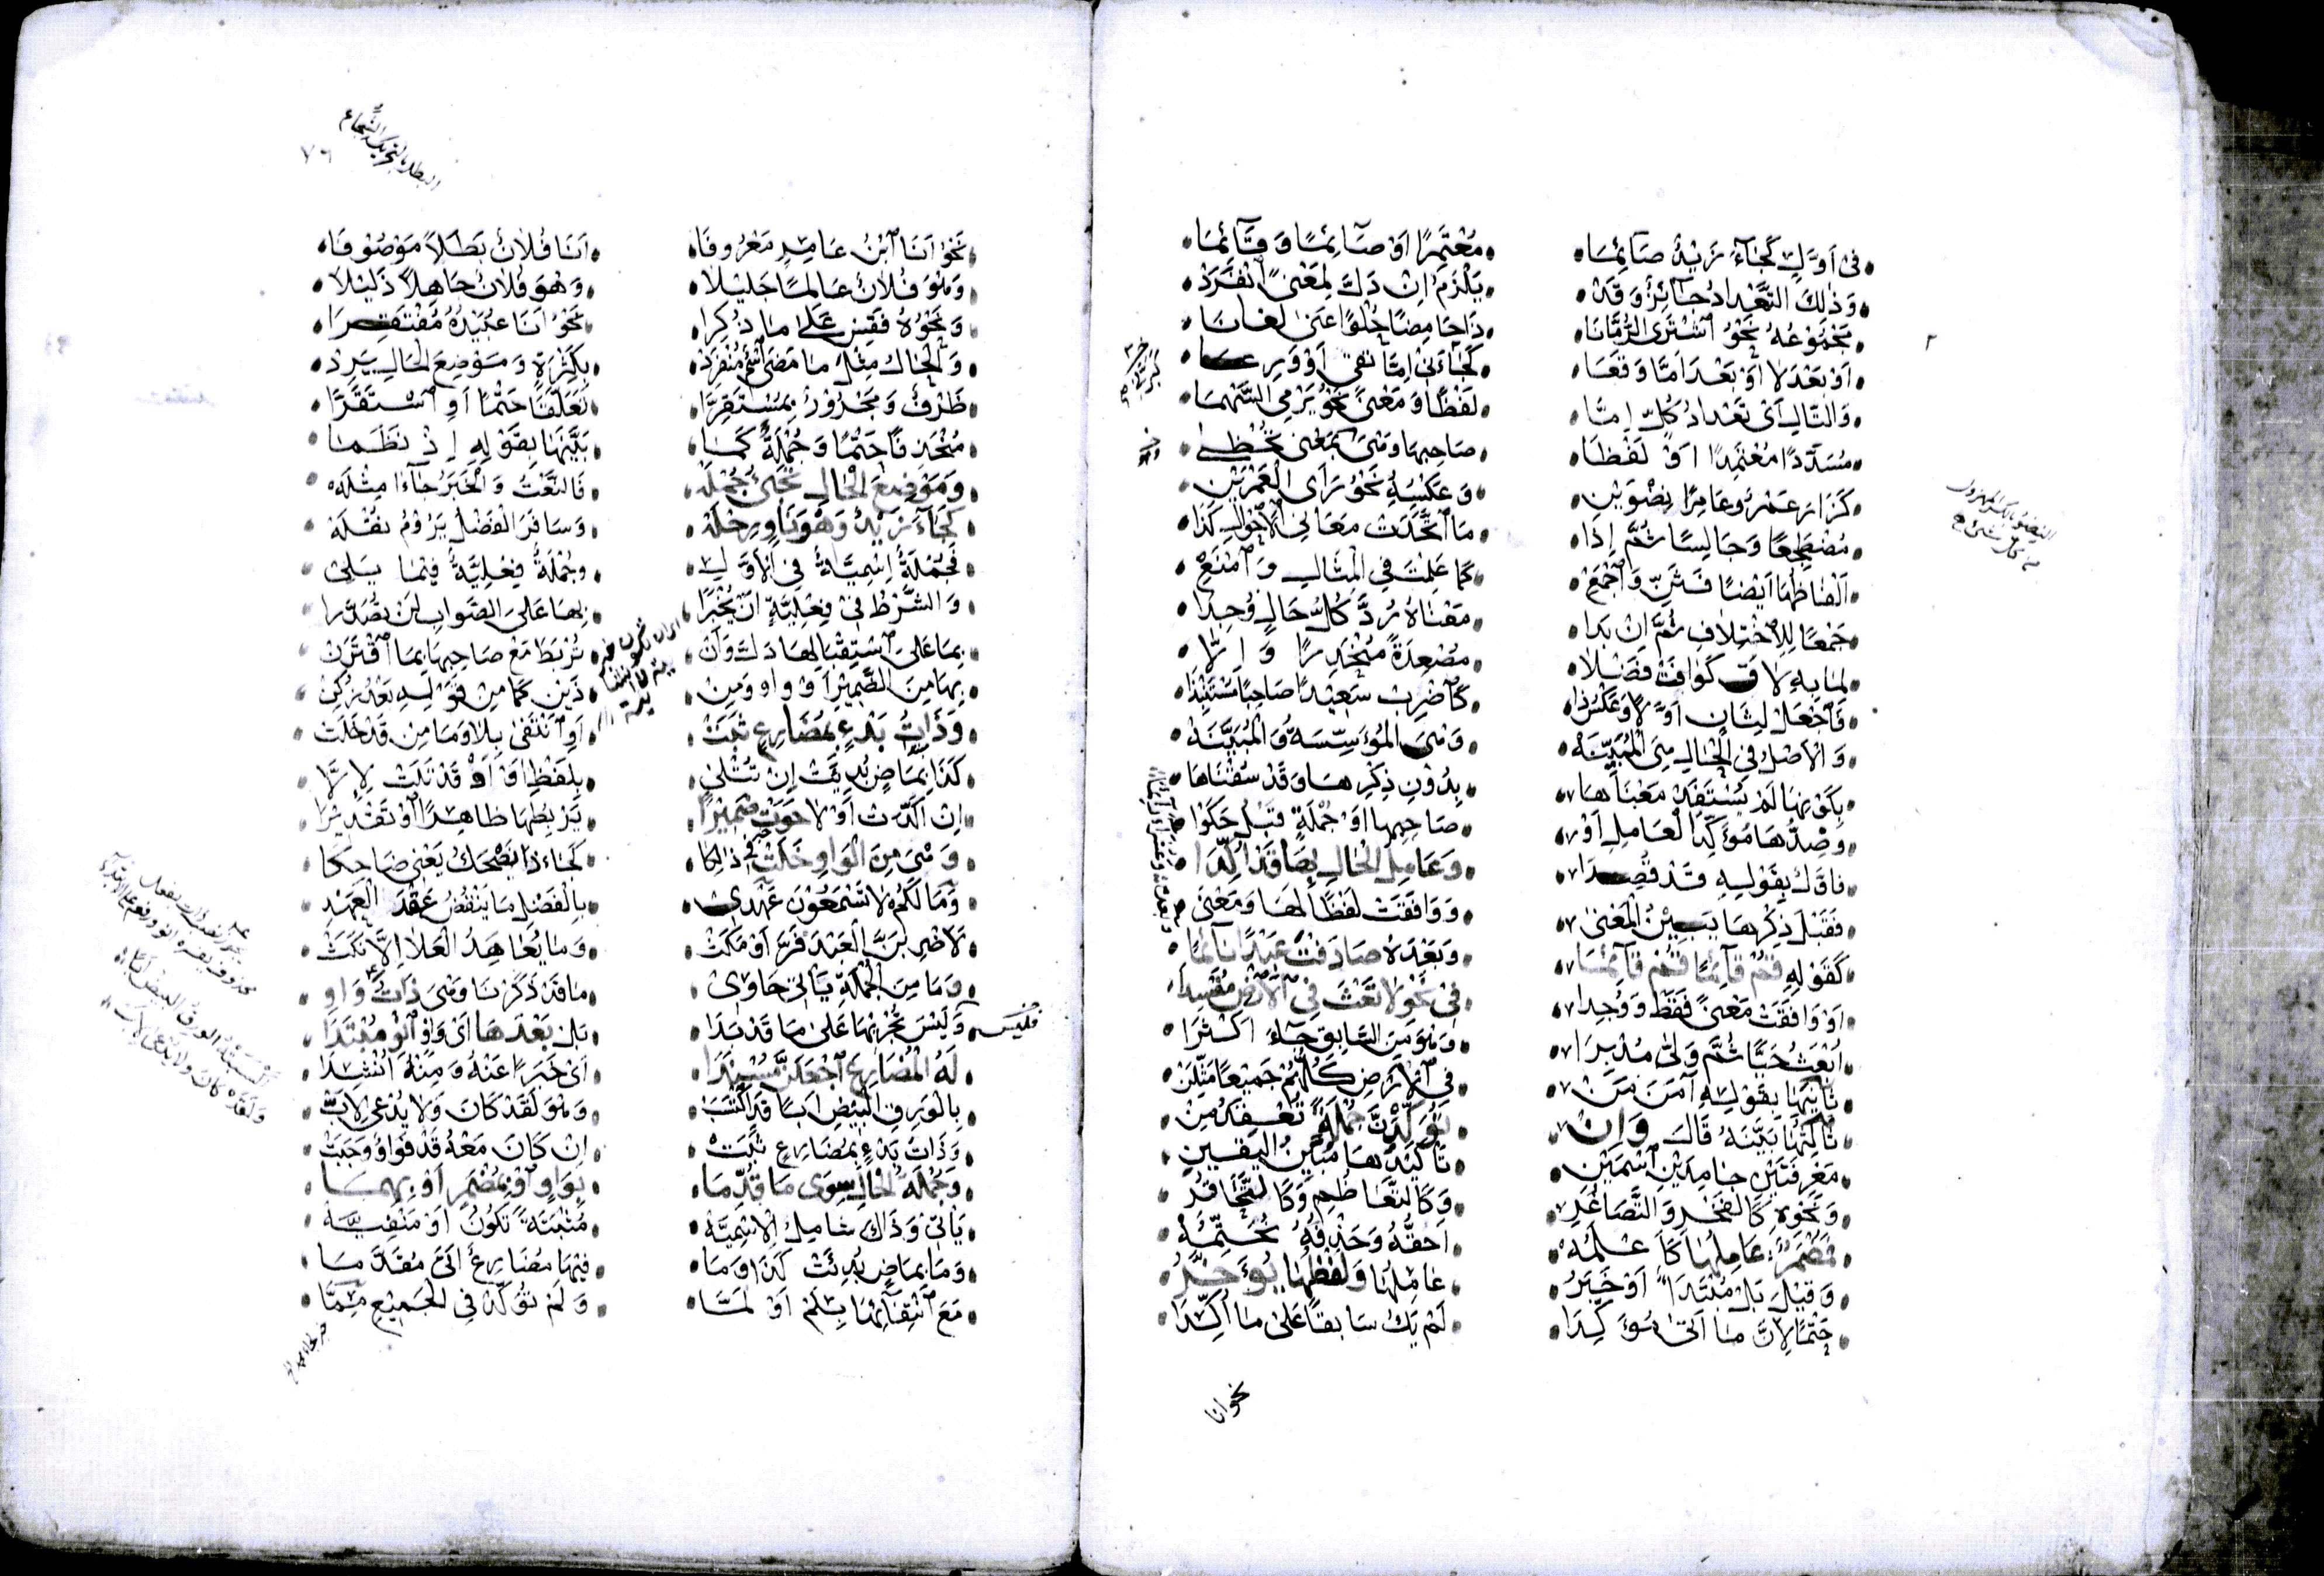 فِي اَوَّلٍ كَجَآءَ زَيْدٌ صَآئِمَا مُعْتَمِرًا اَوْ صَآئِمًا وَقَآئِمَا
وَذٰلِكَ التَّعْدَادُ جَآئِزٌ وَقَدْ يَلْزَمُ اِنْ دَلَّ لِمَعْنًى انْفَرَدْ
مَجْمُوْعُهُ نَحْوُ اشْتَرَى الرُّمَّانَا
اَوْ بَعْدَ لَا اَوْ بَعْدَ اِمَّا وَقَعَا كَجَآءَنِيْ اِمَّا
وَالتَّالِ اَيْ تَعْدَادُ كُلٍّ اِمَّا لَفْظًا وَمَعْنًى نَحْوُ يَرْمِي السَّهْمَا
مُسَدَّدًا مُعْتَمِدًا اَوْ لَفْظَا صَاحِبِهَا وَهْيَ بِمَعْنًى تُحْظٰى
كَزَارَ عَمْرٌو عَامِرًا نِضْوَيْنِ وَعَكْسُهُ نَحْوُ رَأَى الْعَمْرَيْنِ
مُضْطَجِعًا وَجَالِسًا ثُمَّ اِذَا مَا اتَّحَدَتْ مَعَانِي الْاَحْوَالِ كَذَا
اَلْفَاظُهَا اَيْضًا فَثَنِّ وَاجْمَعِ كَمَا عَلِمْتَ فِي الْمِثَالِ وَامْنَعِ
جَمْعًا لِلاِخْتِلَافِ ثُمَّ اِنْ بَدَا مَعْنَاهُ رُدَّ كُلُّ حَالٍ وُجِدَا
لِمَا بِهِ لَاقَ كَوَافَتْ فَضْلَا مُصْعِدَةً مُنْحَدِرًا وَاِلَّا
فَاجْعَلْ لِثَانٍ اَوَّلًا وَعَكْسُ ذَا كَاضْرِبْ سَعِيْدًا صَاحِبًا
وَالْاَصْلُ فِي الْحَالِ هِيَ الْمُبَيِّنَهْ وَهْيَ الْمُؤَسِّسَةُ وَالْمُبَيَّنَهْ
بِكَوْنِهَا لَمْ يُسْتَفَدْ مَعْنَاهَا بِدُوْنِ ذِكْرِهَا وَقَدْ سُقْنَاهَا
وَضِدُّهَا مُؤَكِّدُ الْعَامِلِ اَوْ صَاحِبِهَا اَوْ جُمْلَةٍ قَبْلُ حَكَوْا
فَاَوَّلٌ بِقَوْلِهِ قَدْ قُصِدَا وَعَامِلُ الْحَالِ بِهَا قَدْ اُكِّدَا
فَقَبْلَ ذِكْرِهَا يَبِيْنُ الْمَعْنٰى وَوَافَقَتْ لَفْظًا لَهَا وَمَعْنٰى
كَقَوْلِهِ قُمْ قَآئِمًا قُمْ قَآئِمَا وَبَعْدَهُ صَادَفْتَ عَبْدًا نَآئِمَا
اَوْ وَافَقَتْ مَعْنًى فَقَطْ وَوُجِدَا فِيْ نَحْوِ لَا تَعْثَ فِي الْاَرْضِ مُفْسِدَا
اُبْعَثُ حَيًّا ثُمَّ وَلّٰى مُدْبِرَا وَهْوَ مِنَ السَّابِقِ جَآءَ اَكْثَرَا
ثَانِيْهَا بِقَوْلِهِ آمَنَ مَنْ فِي الْاَرْضِ كُلُّهُمْ جَمِيْعًا مَثِّلَنْ
ثَالِثُهَا بَيَّنَهُ قَالَ وَاِنْ تُؤَكِّدَنَّ جُمْلَةً تُعْفِدُ مِنْ
مَعْرِفَتَيْنِ جَامِدَيْنِ اسْمَيْنِ تَأْكِيْدُهَا مُبَيِّنُ الْيَقِيْنِ
وَنَحْوِهِ كَالْفَخْرِ وَالتَّصَاغُرِ وَكَالتَّعَاظُمِ وَكَالتَّحَاقُرِ
فَمُضْمَرٌ عَامِلُهَا كَاَعْلَمُهْ اَحُقُّهُ وَحَذْفُهُ نُحَتِّمُهْ
وَقِيْلَ بَلْ مُبْتَدَأٌ اَوْ خَبَرُ عَامِلُهَا وَلَفْظُهَا يُؤَخَّرُ
حَتْمًا لِاَنَّ مَا اَتٰى مُؤَكِّدَا لَمْ يَكُ سَابِقًا عَلٰى مَا اُكِّدَا
نحو انا
٧٦
البطل بالتحريك الشجاع
نَحْوُ اَنَا ابْنُ عَامِرٍ مَعْرُوْفَا اَنَا فُلَانٌ بَطَلًا مَوْصُوْفَا
وَهْوَ فُلَانٌ عَالِمًا جَلِيْلَا وَهُوَ فُلَانٌ جَاهِلًا ذَلِيْلَا
وَنَحْوُهُ فَقِسْ عَلٰى مَا ذُكِرَا نَحْوُ اَنَا عُبَيْدُهُ مُفْتَقِرَا
وَالْحَالُ مِثْلُ مَا مَضٰى اسْمٌ مُنْفَرِدْ بِكَثْرَةٍ وَمَوْضِعَ الْحَالِ يَرِدْ
ظَرْفٌ وَمَجْرُوْرٌ بِمُسْتَقِرَّا تَعَلَّقَا حَتْمًا اَوِ اسْتَقَرَّا
مُنْحَذِفًا حَتْمًا وَجُمْلَةٌ كَمَا بَيَّنَهَا بِقَوْلِهِ اِذْ نَظَمَا
وَمَوْضِعَ الْحَالِ تَجِيْءُ جُمْلَهْ فَالنَّعْتُ وَالْخَبَرُ جَآءَا مِثْلَهْ
كَجَآءَ زَيْدٌ وَهْوَ نَاوٍ رِحْلَهْ وَسَافَرَ الْفَضْلُ يَرُوْمُ نَقْلَهْ
فَجُمْلَةٌ اِسْمِيَّةٌ فِي الْاَوَّلِ وَجُمْلَةٌ فِعْلِيَّةٌ فِيْمَا يَلِيْ
وَالشَّرْطُ فِيْ فِعْلِيَّةٍ اَنْ يُخْبَرَا بِهَا عَلَى الصَّوَابِ لَنْ تُصَدَّرَا
بِمَا عَلَى اسْتِقْبَالِهَا دَلَّ وَاَنْ تُرْبَطَ مَعْ صَاحِبِهَا بِمَا اقْتَرَنْ
بِهَا مِنَ الضَّمِيْرِ اَوْ وَاوٍ وَمِنْ ذَيْنِ كَمَا مِنْ قَوْلِهِ بَعْدُ زُكِنْ
وَذَاتُ بَدْءٍ بِمُضَارِعٍ ثَبَتْ اَوِ انْتَفٰى بِلَا وَمَا مِنْ قَدْ خَلَتْ
كَذَا بِمَاضٍ بُدِئَتْ اِنْ تُتْلٰى بِلَفْظِ اَوْ اَوْ قَدْ تَلَتْ لِاِلَّا
اِنْ اُكِّدَتْ اَوْ لَا حَوَتْ ضَمِيْرَا يَرْبِطُهَا ظَاهِرًا اَوْ تَقْدِيْرَا
وَهْيَ مِنَ الْوَاوِ خَلَتْ فِيْ ذٰلِكَا كَجَاءَ ذَا يَضْحَكُ يَعْنِيْ ضَاحِكَا
وَمَا لَكُمْ لَا تَسْمَعُوْنَ عَهْدِيْ بِالْفَضْلِ مَا يَنْقُضُ عَقْدَ الْعَهْدِ
لَاَضْرِبَنَّ الْعَبْدَ فَرَّ اَوْ مَكَثْ وَمَا يُعَاهِدُ الْعَلَا اِلَّا نَكَثْ
وَمَا مِنَ الْجُمْلَةِ يَأْتِيْ حَاوِيْ مَا قَدْ ذَكَرْنَا وَهْيَ ذَاتُ وَاوِ
وَلَيْسَ نُجْرِيْهَا عَلٰى مَا قَدْ بَدَا بَلْ بَعْدَهَا اَيْ وَاوٍ انْوِ مُبْتَدَا
فليس
لَهُ الْمُضَارِعَ اجْعَلَنَّ مُسْنَدَا اَيْ خَبَرًا عَنْهُ وَمِنْهُ اُنْشِدَا
بِالْوَرِقِ الْبِيْضِ اَبًا قَدِ اكْتَسَبْ وَهْوَ لَقَدْ كَانَ وَلَا يُدْعٰى لِاَبْ
وَذَاتُ بَدْءٍ بِمُضَارِعٍ ثَبَتْ اِنْ كَانَ مَعْهُ قَدْ فَوَاوٌ وَجَبَتْ
وَجُمْلَةُ الْحَالِ سِوٰى مَا قُدِّمَا بِوَاوٍ اَوْ بِمُضْمَرٍ اَوْ بِهِمَا
يَأْتِيْ وَذَاكَ شَامِلُ الْاِسْمِيَّهْ مُثْبَتَةً تَكُوْنُ اَوْ مَنْفِيَّهْ
وَمَا بِمَاضٍ بُدِئَتْ كَذَا وَمَا فِيْهَا مُضَارِعٌ اَتٰى مُقَدَّمَا
مَعَ انْتِفَائِهَا بِلَمْ اَوْ لَمَّا وَلَمْ تُؤَكَّدْ فِي الْجَمِيْعِ مِمَّا